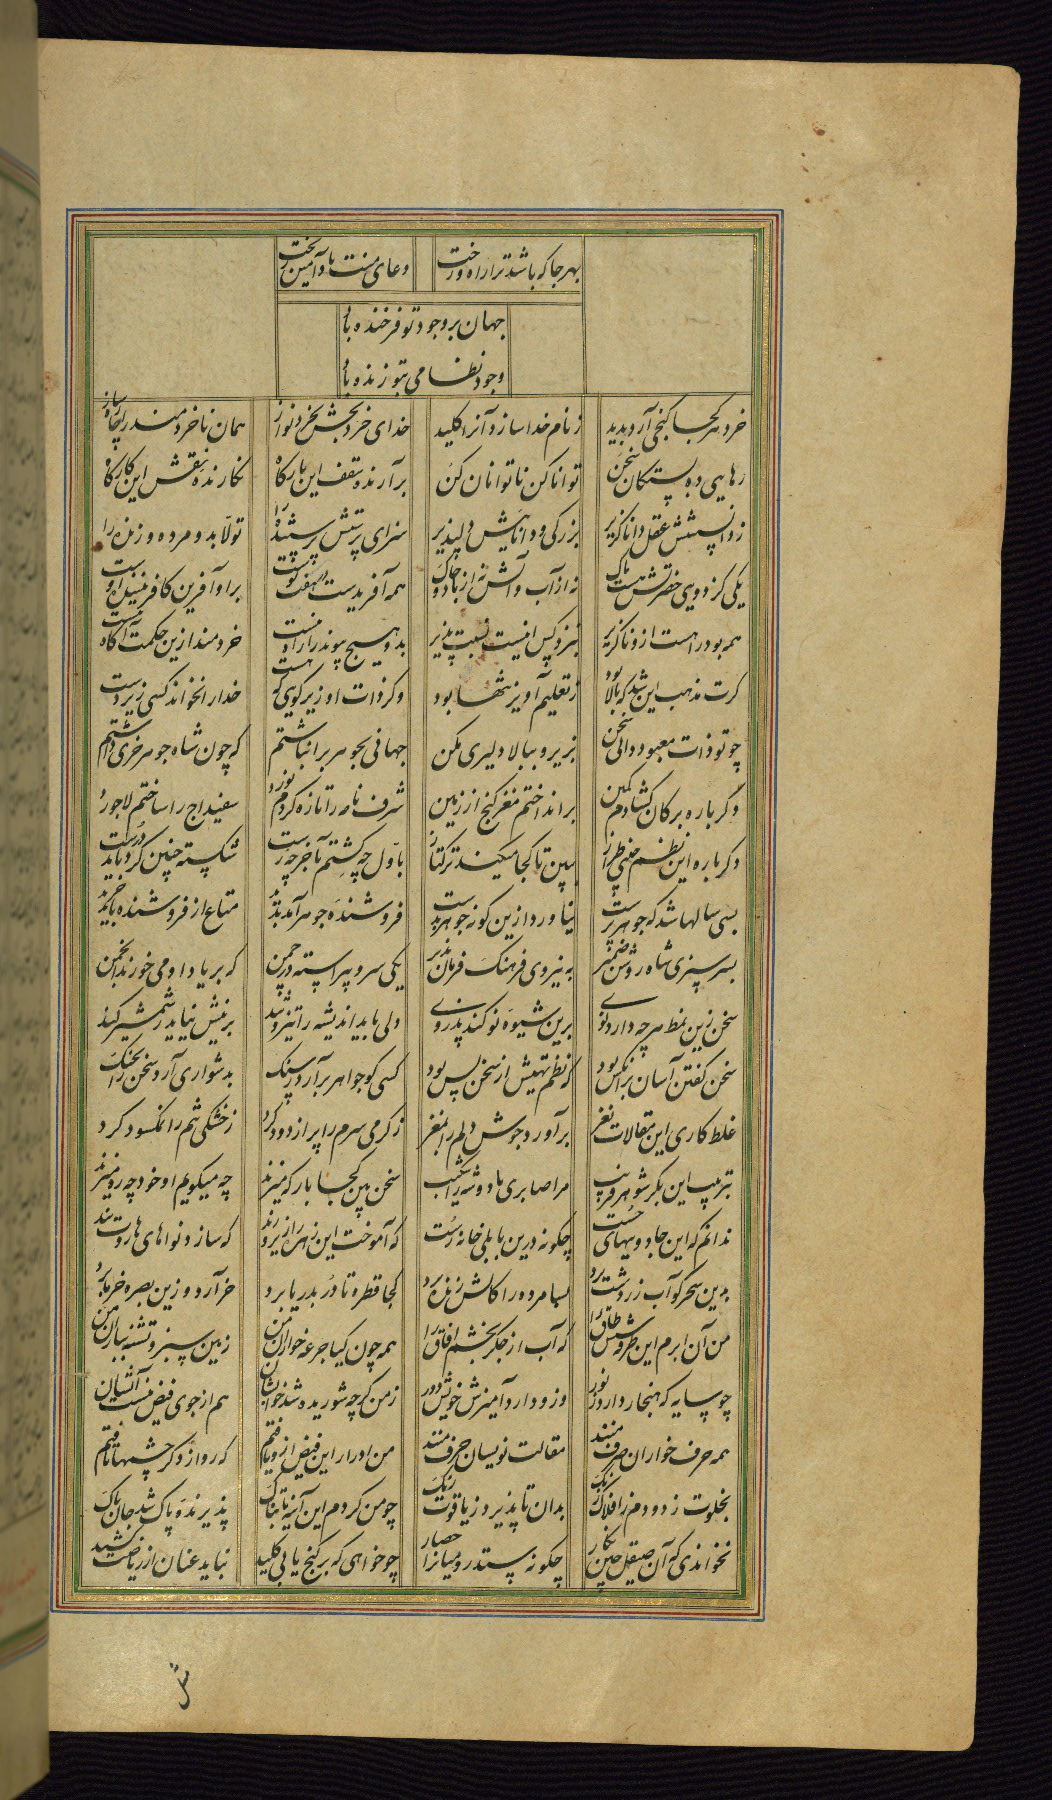 بهر جا که باشد ترا راه و رخت دعای منت باد آمین رخت
جهان بر وجود تو فرخنده باد
وجود نظامی بتو زنده باد
خرد هر کجا کنجی آرد پدید ز نام خدا سازد آنرا کلید خدای خرد بخش بخرد نواز همان ناخردمند را چاره ساز
رهایی ده بستکان سخن توانا کن ناتوانان کن برآرنده سقف این بارکاه نکارنده نقش این کارکاه
ز دانستنش عقل را ناکزیر بزرکی و داناییش دلپذیر سزای پرستش پرستنده را تولا بدو مرده و زنده را
یکی کز دویی حضرتش هست پاک نه از آب و آتش نه از باد و خاک همه آفریدست در هفت پوست برو آفرین کافریننده اوست
همه بود را هست ازو ناکزیر ببود کس او نیست نسبت پذیر بدو هیچ پوینده را راه نیست خردمند ازین حکمت آکاه نیست
کرت مذهب این شد که بالا بود ز تعلیم او زیر تنها بود وکر ذات او زیر کویی که هست خدا را نخواند کسی زیردست
چو تو ذات معبود دانی سخن بزیر و ببالا دلیری مکن جهانی بجوهر برانباشتم که چون شاه جوهر خری داشتم
دکر باره بر کان کشادم کمین برانداختم مغز کنج از زمین شرف نامه را تازه کردم نورد سفیداج را ساختم لاجورد
دکر باره این نظم چینی طراز ببین تا کجا میکند ترکتاز باول چه کشتم تا خر چه رست شکسته چنین کرد باید درست
بسی سالها شد که جوهر پرست نیاورد ازین کونه جوهر بدست فروشنده جوهر آمد پدید متاع از فروشنده باید خرید
بسر سبزی شاه روشن ضمیر به نیروی فرهنک فرمان پذیر یکی سرو پیراسته در چمن که بر یاد او می خورد انجمن
سخن زین نمط هر چه دارد نوی برین شیوه نو کند پیروی ولی باید اندیشه را تیز و تند برنش نیاید ز شمشیر کند
سخن کفتن آسان بر آنکس بود که نظم تهیش از سخن بس بود کسی کو جواهر برآرد ز سنک بدشواری آرد سخن را بچنک
غلط کاری این مقالات نغز برآورد جوش دلم را بمغز ز کرمی سرم را پر از دود کرد ز خشکی تنم را نمکسود کرد
بترتیب این بکر شوهر فریب مرا صابری باد و شه را شکیب سخن بین کجا بارکه میزند چه میکویم او خود چه ره میزند
ندانم که این جادوییهای چست چکونه درین بابلی خانه رست که آموخت این زهره را زیر زند که سازد نواهای هاروت بند
بدین سحر کو آب زردشت برد بسا مرده را کاتش زنده مرد کجا قطره تا در بدریا برد خرآرد و زین بصره خرما برد
من آن ابرم این طرف شش طاق را که آب از جکر بخشم آفاق را همه چون کیا جرعه خواران من ز من سبز و تشنه بباران من
چو سایه که هنجار دارد ز نور وزو دارد آمیزش خویش دور ز من کرچه شوریده شد خوابشان هم از جوی فیض منست آبشان
همه صرف خواران صرف منند مقالت نویسان حرف منند من ادرار این فیض ازو یافتم که رو از دکر چشمها تافتم
بخلوت ز دودم ز افلاک زنک بدان تا پذیرد ز یاقوت رنک چو من کردم این آینه تابناک پذیرنده پاک شد جان پاک
نخواندی که آن صیقل چین نکار چکونه ستد رومیانرا حصار چو خواهی که بر کنج یابی کلید نباید عنان از ریاضت کشید